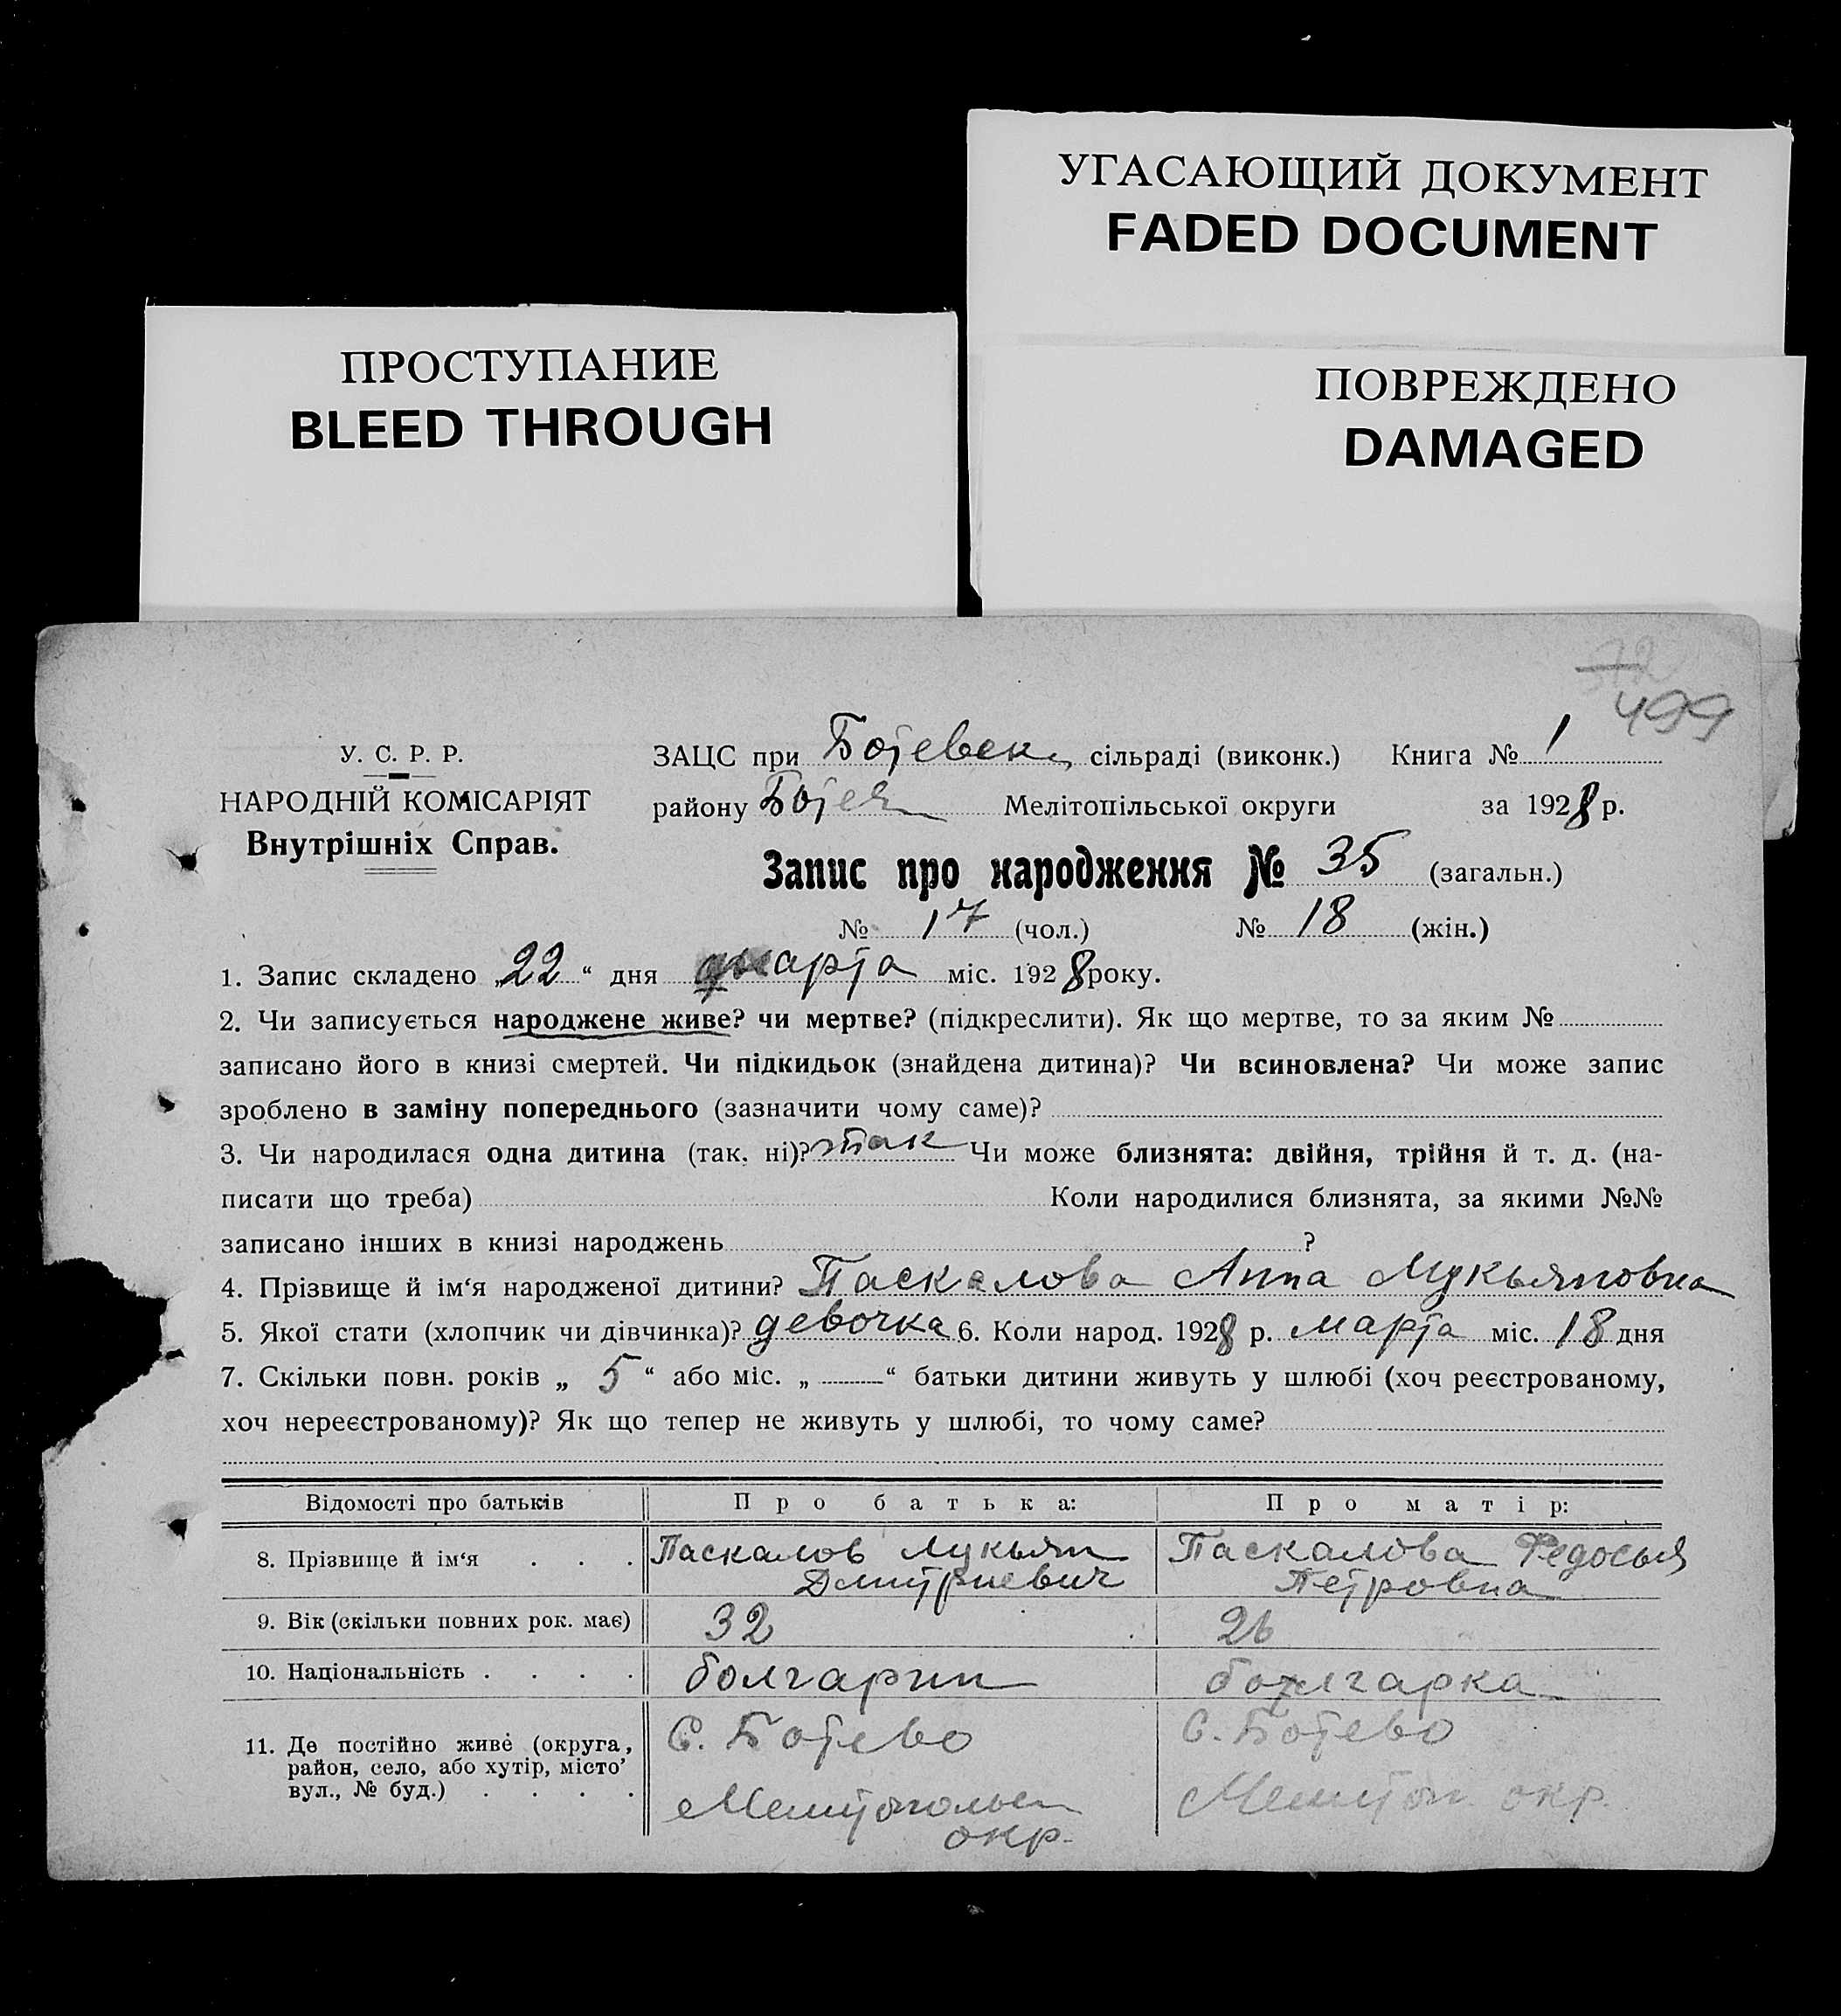 УГАСАЮЩИЙ ДОКУМЕНТ
FADED DOCUMENT
ПРОСТУПАНИЕ
BLEED THROUGH
ПОВРЕЖДЕНО
DAMAGED
499
У. С. Р. Р.
НАРОДНІЙ КОМІСАРІЯТ
Внутрішніх Справ.
ЗАЦС при Ботевск. сільраді (виконк.) Книга № 1
району Ботев Мелітопільської округи за 1928 р.
Запис про народження № 35 (загальн.)
№ 17 (чол.) № 18 (жін.)
1. Запис складено „22“ дня марта міс. 1928 року.
2. Чи записується народжене живе? чи мертве? (підкреслити). Як що мертве, то за яким №
записано його в книзі смертей. Чи підкидьок (знайдена дитина)? Чи всиновлена? Чи може запис
зроблено в заміну попереднього (зазначити чому саме)?
3. Чи народилася одна дитина (так, ні)? так Чи може близнята: двійня, трійня й т. д. (на-
писати що треба) Коли народилися близнята, за якими №№
записано інших в книзі народжень ?
4. Прізвище й ім‘я народженої дитини? Паскалова Анна Лукьяновна
5. Якої стати (хлопчик чи дівчинка)? девочка 6. Коли народ. 1928 р. марта міс. 18 дня
7. Скільки повн. років „ 5 “ або міс. „ — “ батьки дитини живуть у шлюбі (хоч реєстрованому,
хоч нереєстрованому)? Як що тепер не живуть у шлюбі, то чому саме?
Відомості про батьків Про батька: Про матір:
8. Прізвище й ім‘я . . . Паскалов Лукьян Дмитриевич Паскалова Федосья Петровна
9. Вік (скільки повних рок. має) 32 26
10. Національність . . . . болгарин болгарка
11. Де постійно живе (округа, район, село, або хутір, місто’ вул., № буд.) . . . . С. Ботево Мелитопольск окр. С. Ботево Мелитоп. окр.